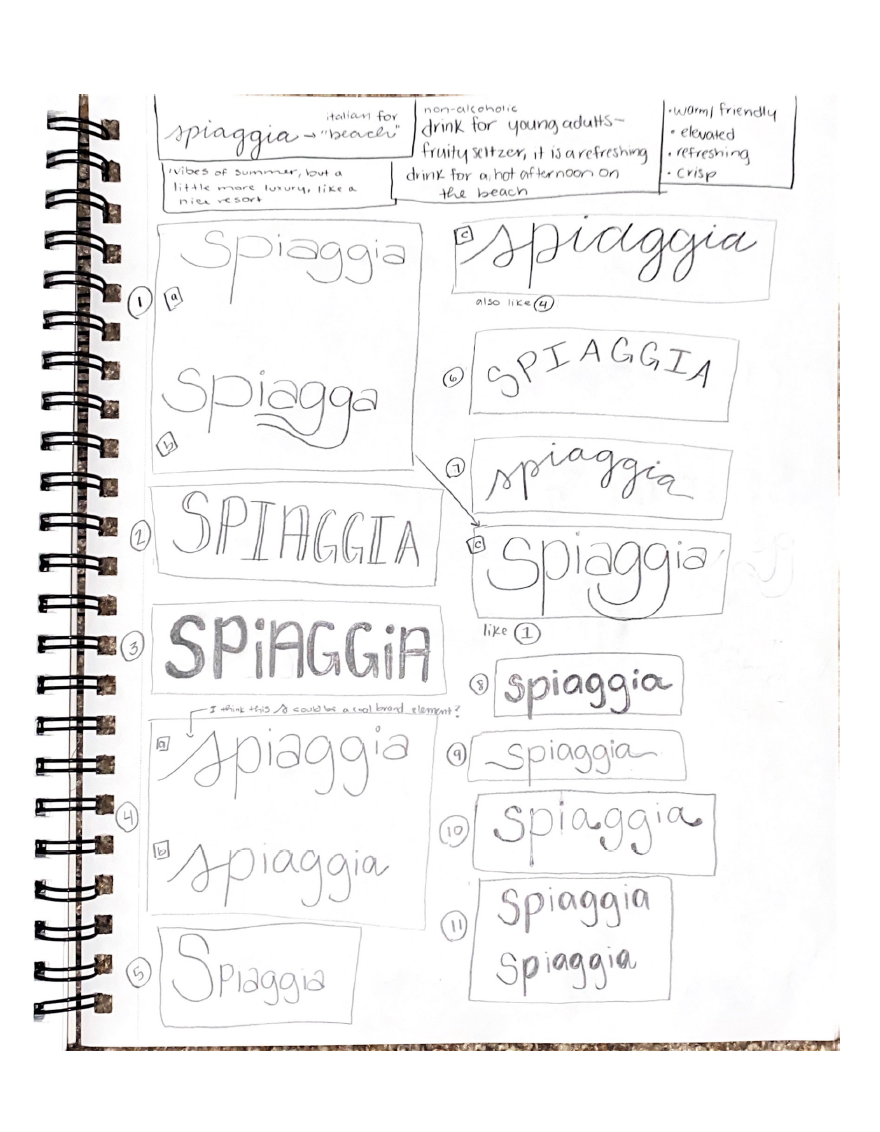 italian for
spiaggia → "beach"
vibes of summer, but a
little more luxury, like a
nice resort
non-alcoholic
drink for young adults-
fruity seltzer, it is a refreshing
drink for a hot afternoon on
the beach
• warm/friendly
• elevated
• refreshing
• crisp
1
Spiaggia
a
Spiagga
b
2
SPIAGGIA
3
SPiAGGiA
I think this s could be a cool brand element?
4
a
spiaggia
b
spiaggia
5
Spiaggia
c
spiaggia
also like 4
6
SPIAGGIA
7
spiaggia
c
Spiaggia
like 1
8
spiaggia
9
spiaggia
10
spiaggia
11
Spiaggia
spiaggia